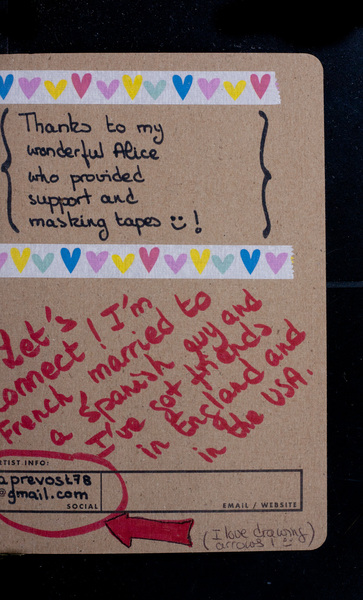 Thanks to my
wonderful Alice
who provided
support and
masking tapes !
Let's
connect! I'm
French married to
a Spanish guy and
I've got friends
in England and
in the USA.
ARTIST INFO:
aprevost78
@gmail.com
SOCIAL
EMAIL / WEBSITE
(I love drawing
arrows !)